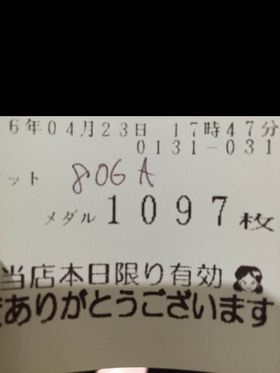 6年04月23日 17時47分
0131-031
ット 806A
メダル 1097枚
当店本日限り有効
ありがとうございます